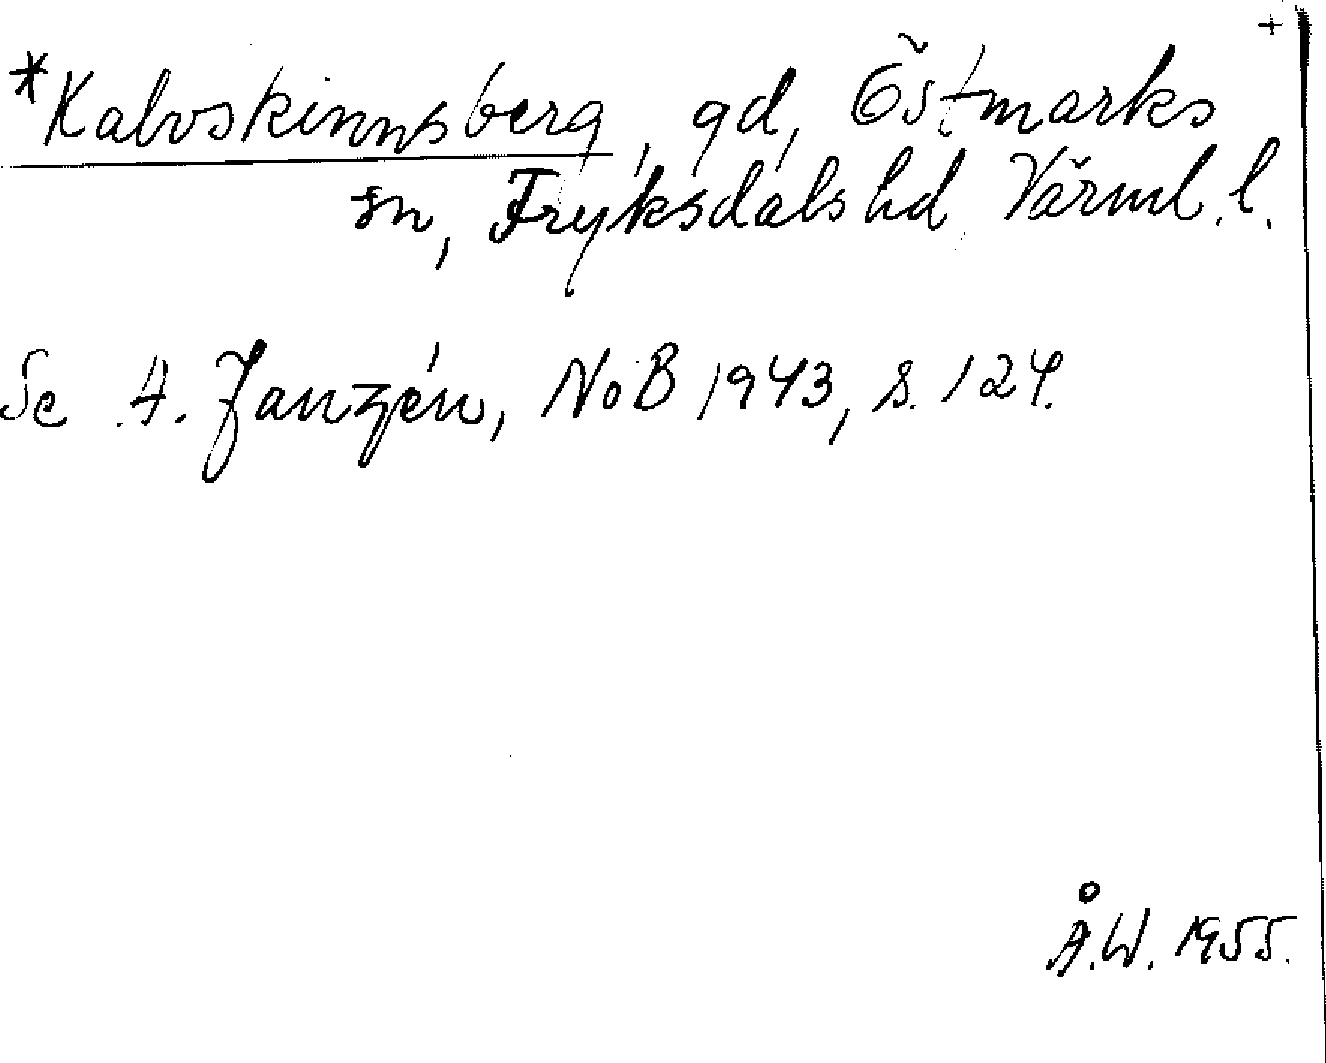 +
*Kalvskinnsberg, gd, Östmarks
sn, Fryksdals hd, Värml. l.
Se A. Janzén, NoB 1943, s. 124.
Å.W. 1955.